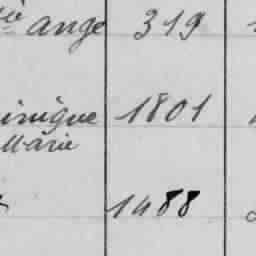 ange 319
inique 1801
Marie
1488